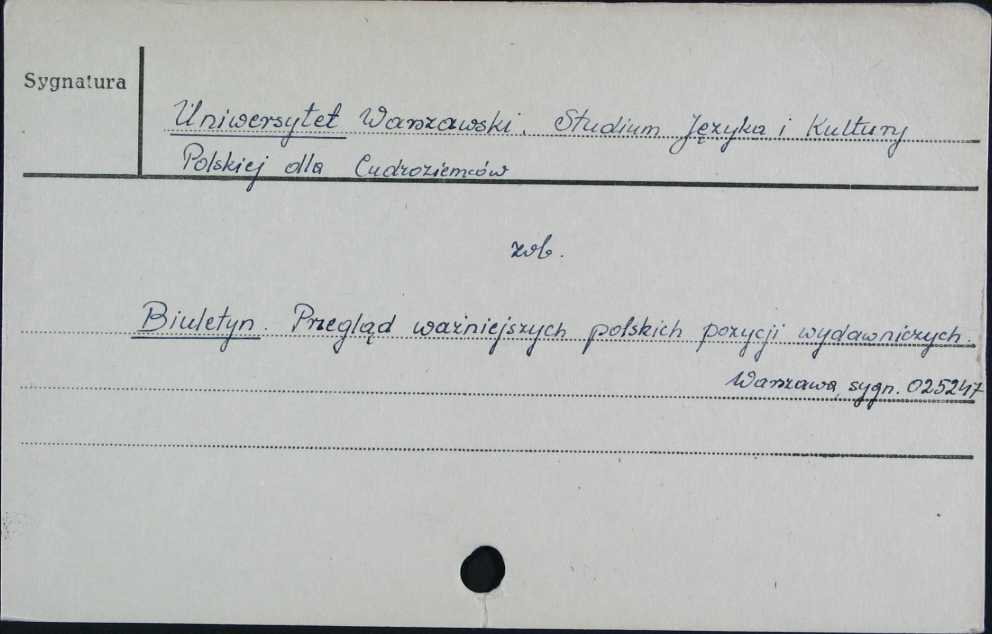 Sygnatura
Uniwersytet Warszawski. Studium Języka i Kultury
Polskiej dla Cudzoziemców
zob.
Biuletyn. Przegląd ważniejszych polskich pozycji wydawniczych.
Warszawa, sygn. 025247